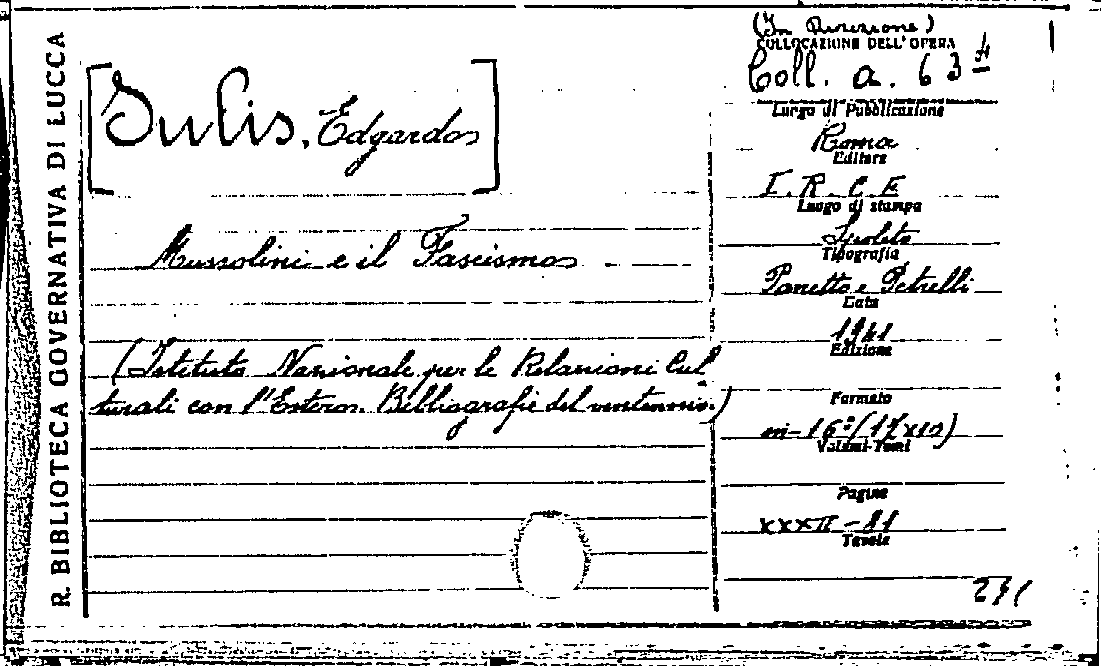 R. BIBLIOTECA GOVERNATIVA DI LUCCA
[Sulis, Edgardo]
Mussolini e il Fascismo
(Istituto Nazionale per le Relazioni Cul
turali con l'Estero. Bibliografie del ventennio.)
(In Direzione)
COLLOCAZIONE DELL'OPERA
Coll. a. 63
Luogo di Pubblicazione
Roma
Editore
I. R. C. E
Luogo di stampa
Spoleto
Tipografia
Panetto e Petrelli
Data
1941
Edizione
Formato
in-16° (17x10)
Volumi-Tomi
Pagine
XXXII-81
Tavole